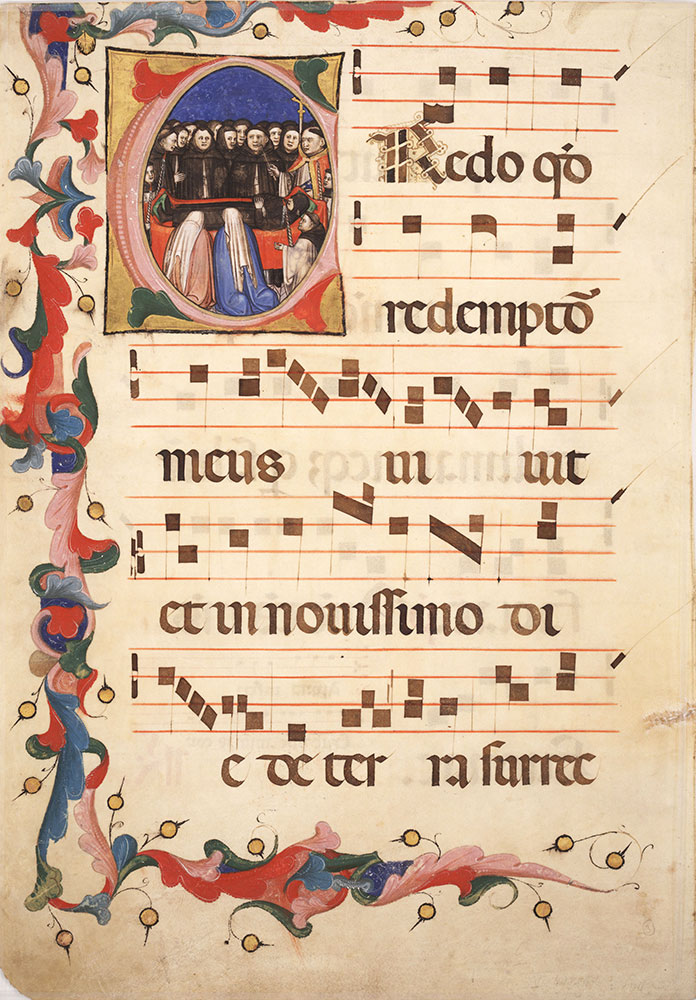 CRedo qđ
redemptō
meus ui uit
et in nouissimo di
e de ter ra surrec